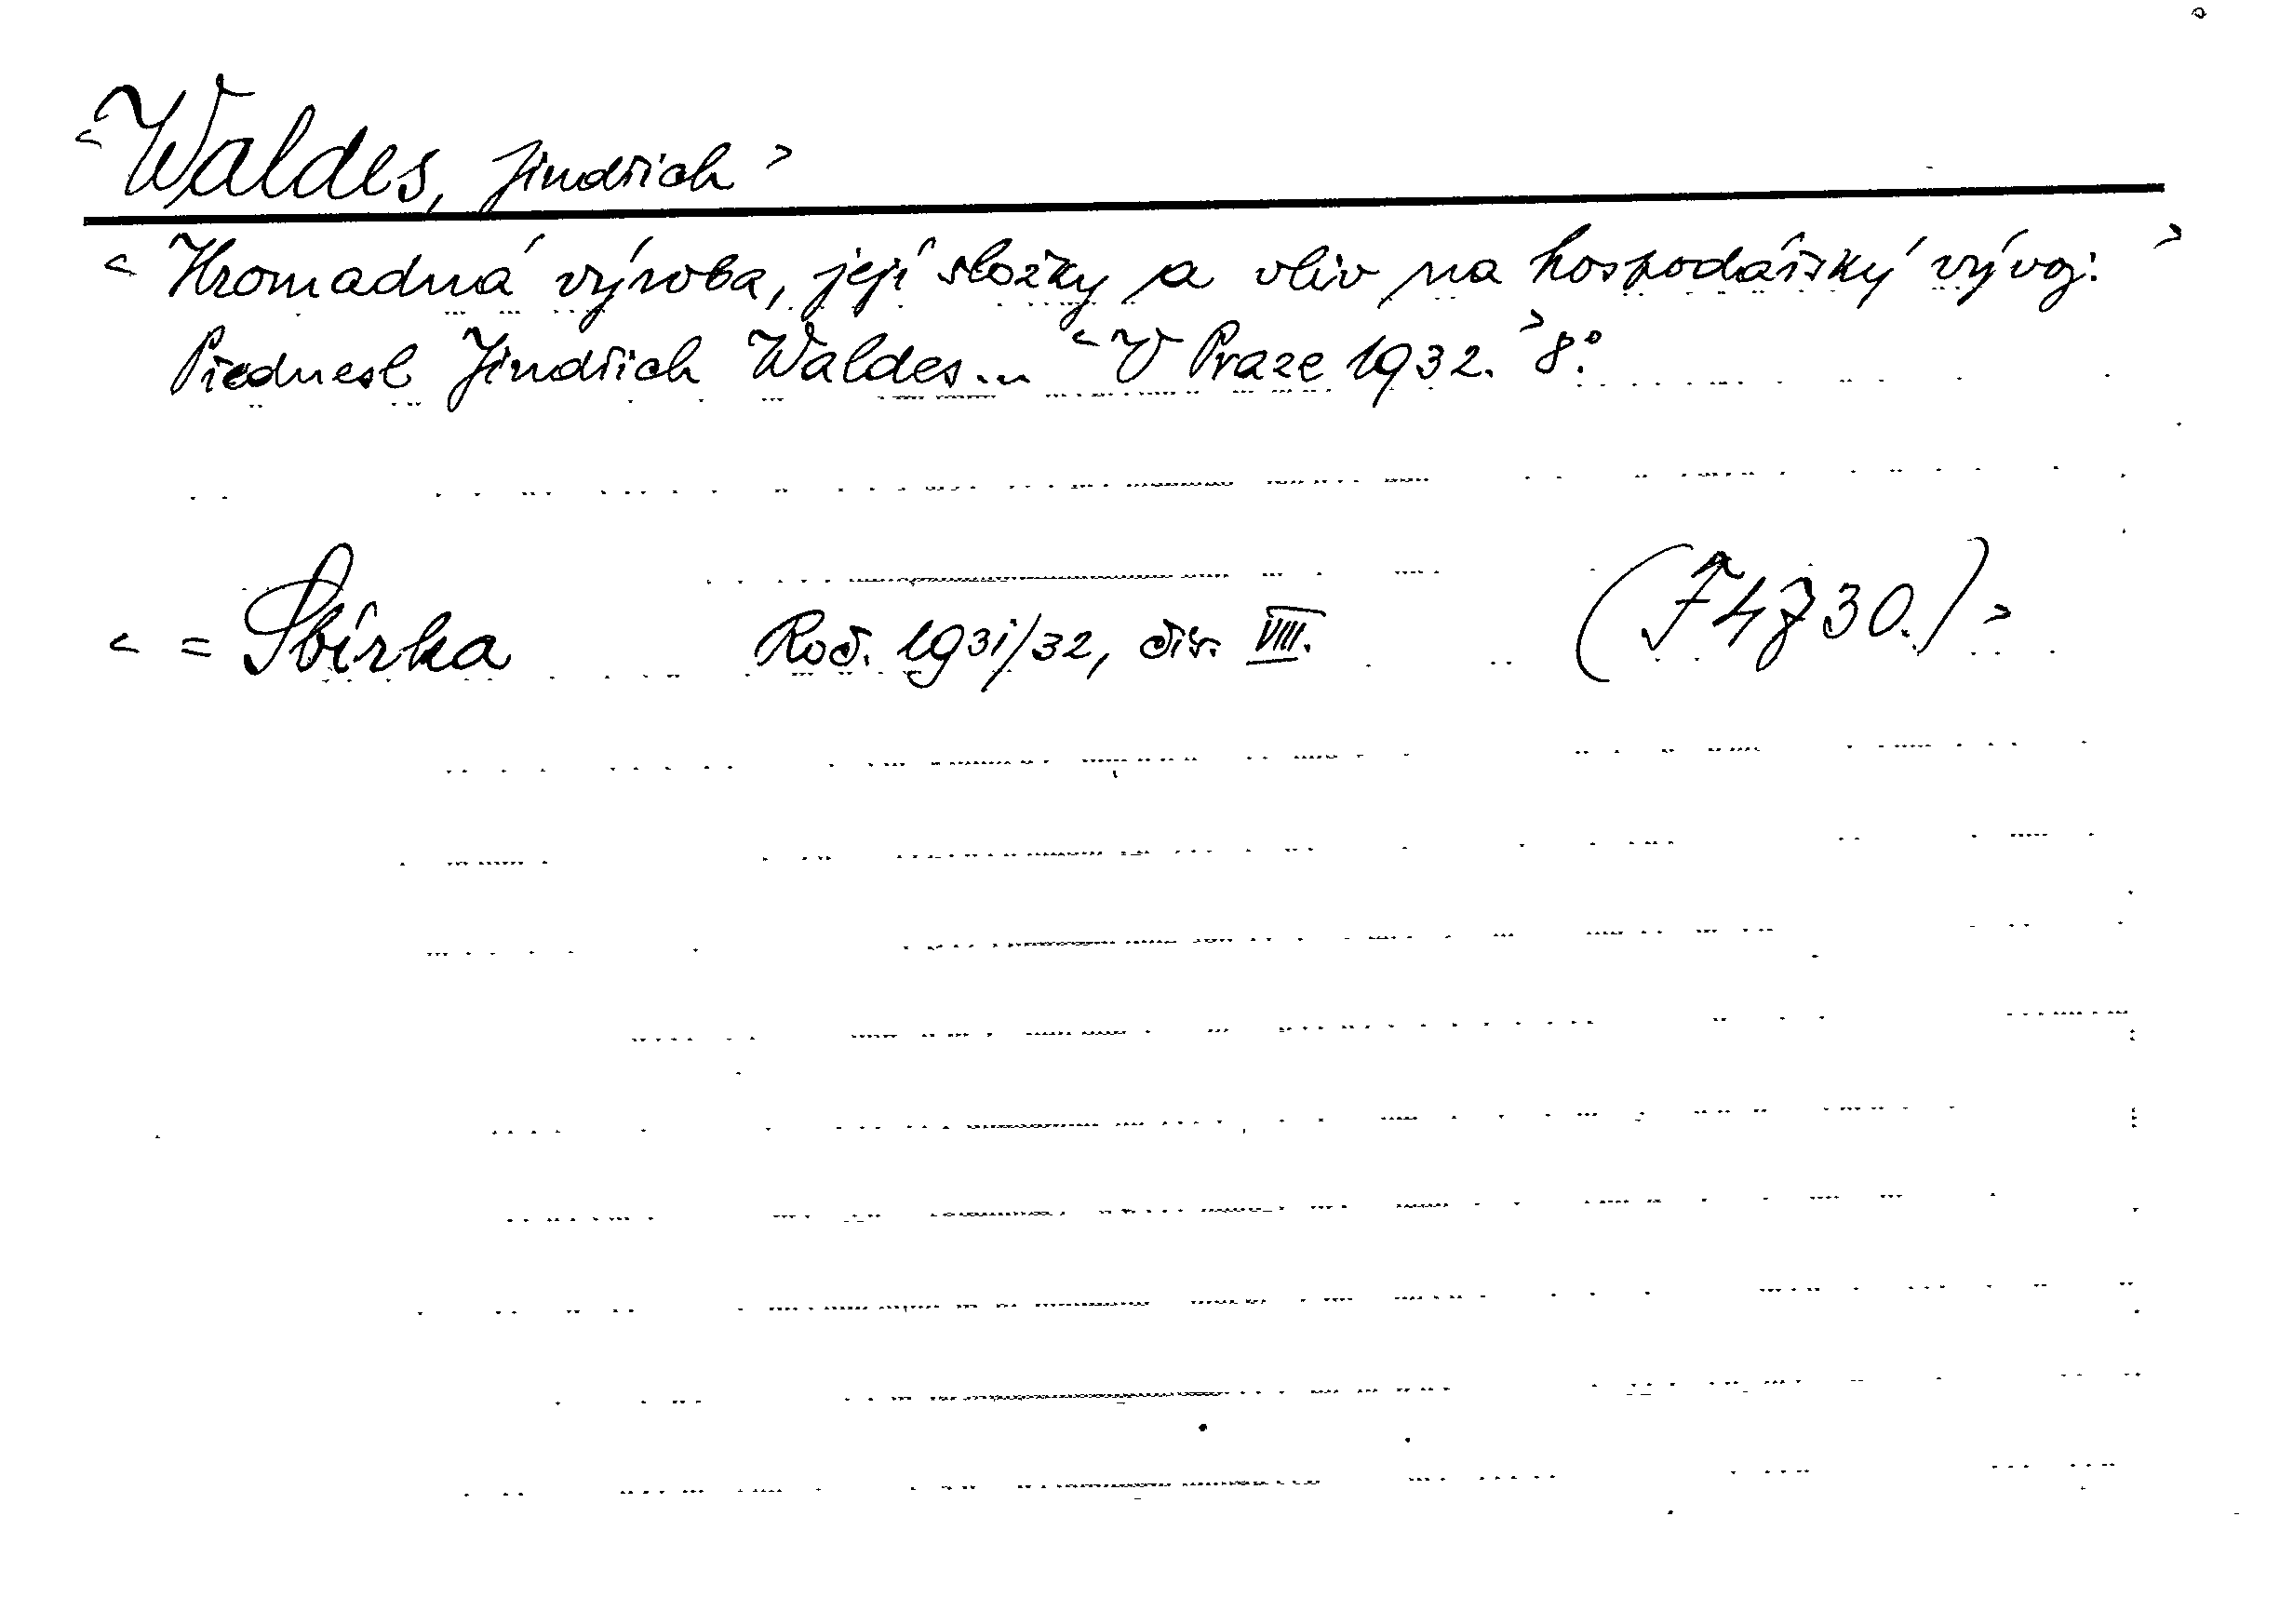 < Waldes, Jindřich >
< Hromadná výroba, její složky a vliv na hospodářský vývoj: >
Přednesl Jindřich Waldes... < V Praze 1932. > 8°.
< = Sbírka Roč. 1931/32, čís. VIII. (F4730.) >